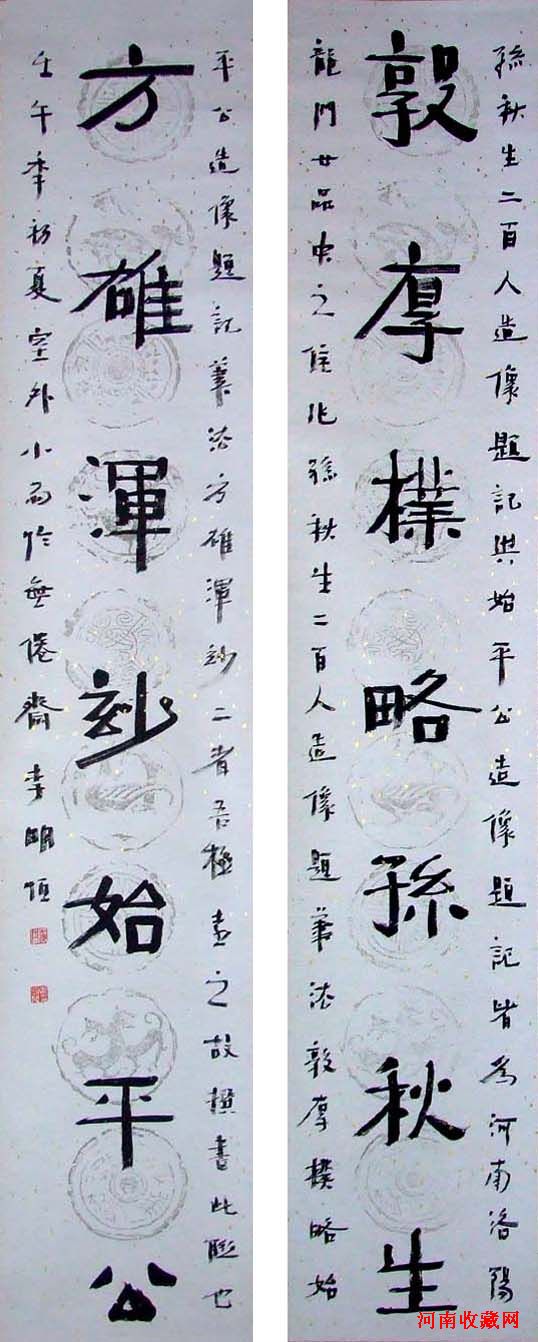 孫秋生二百人造像題記與始平公造像題記皆為河南洛陽
敦厚樸略孫秋生
龍門廿品中之佳作孫秋生二百人造像題筆法敦厚樸略始
平公造像題記筆法方雄渾玅二者吾極喜之故撰書此聯也
方雄渾玅始平公
壬午年初夏室外小雨於無倦齋李明
河南收藏网